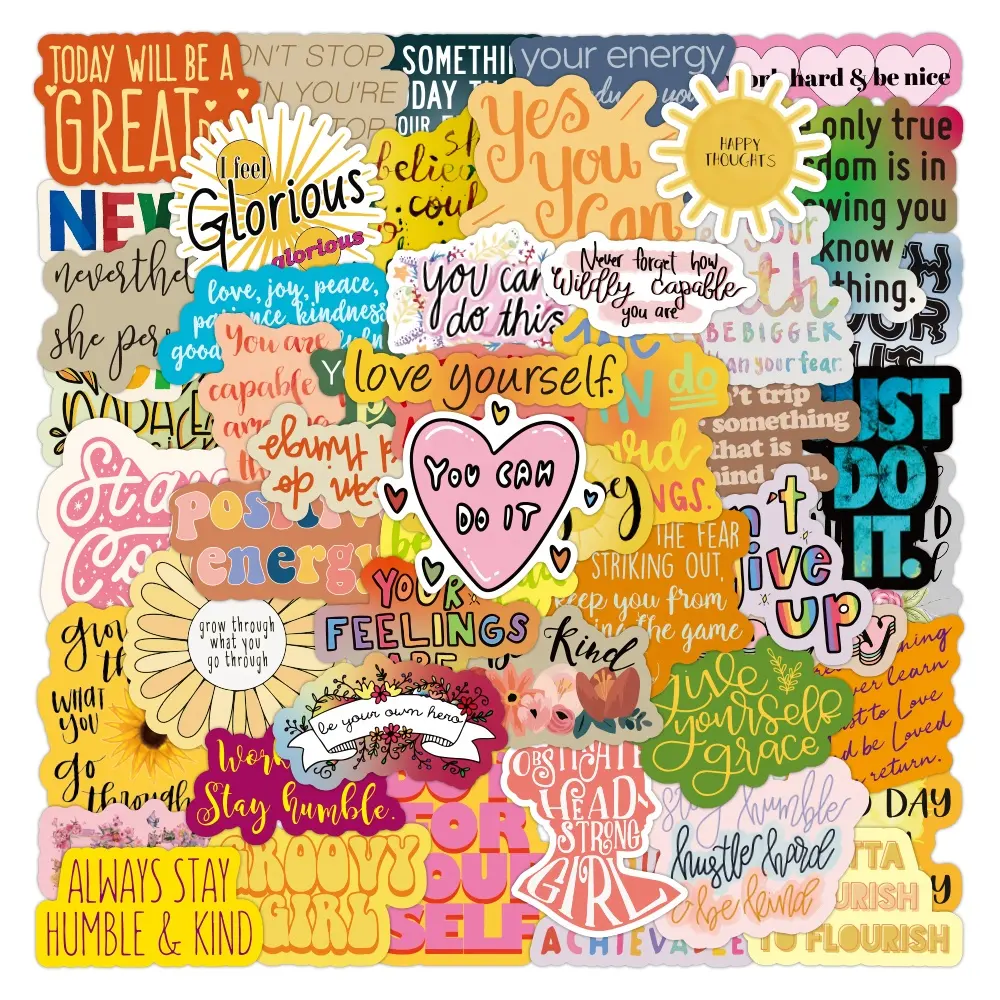 TODAY WILL BE A
GREAT
N'T STOP
YOU'RE
STOP
SOMETHI
DAY TH
your energy
hard & be nice
I feel
Glorious
glorious
believed
could
Yes
You
Can
HAPPY
THOUGHTS
only true
dom is in
wing you
know
thing.
NEV
neverthel
she per
love, joy, peace,
patience kindness
good
you can
do this
Never forget how
Wildly capable
you are
your
th
BE BIGGER
an your fear.
You are
capable
love yourself.
do
't trip
something
that is
ind you.
JUST
DO
IT.
Stay
do things
YOU CAN
DO IT
positive
energy
THE FEAR
STRIKING OUT,
keep you from
the game
n't
ive
up
grow through
what you
go through
YOUR
FEELINGS
ARE
Kind
grow
th
WHAT
YOU
go
through
be your own hero
Give
yourself
grace
er learn
st to Love
d be Loved
return.
Work
Stay humble.
OBSTINATE
HEAD-
STRONG
GIRL
stay humble
hustle hard
& be kind
DAY
ALWAYS STAY
HUMBLE & KIND
GROOVY
GIRL
FOR
OUR
SELF
ACHIEVABLE
TTA
URISH
TO FLOURISH